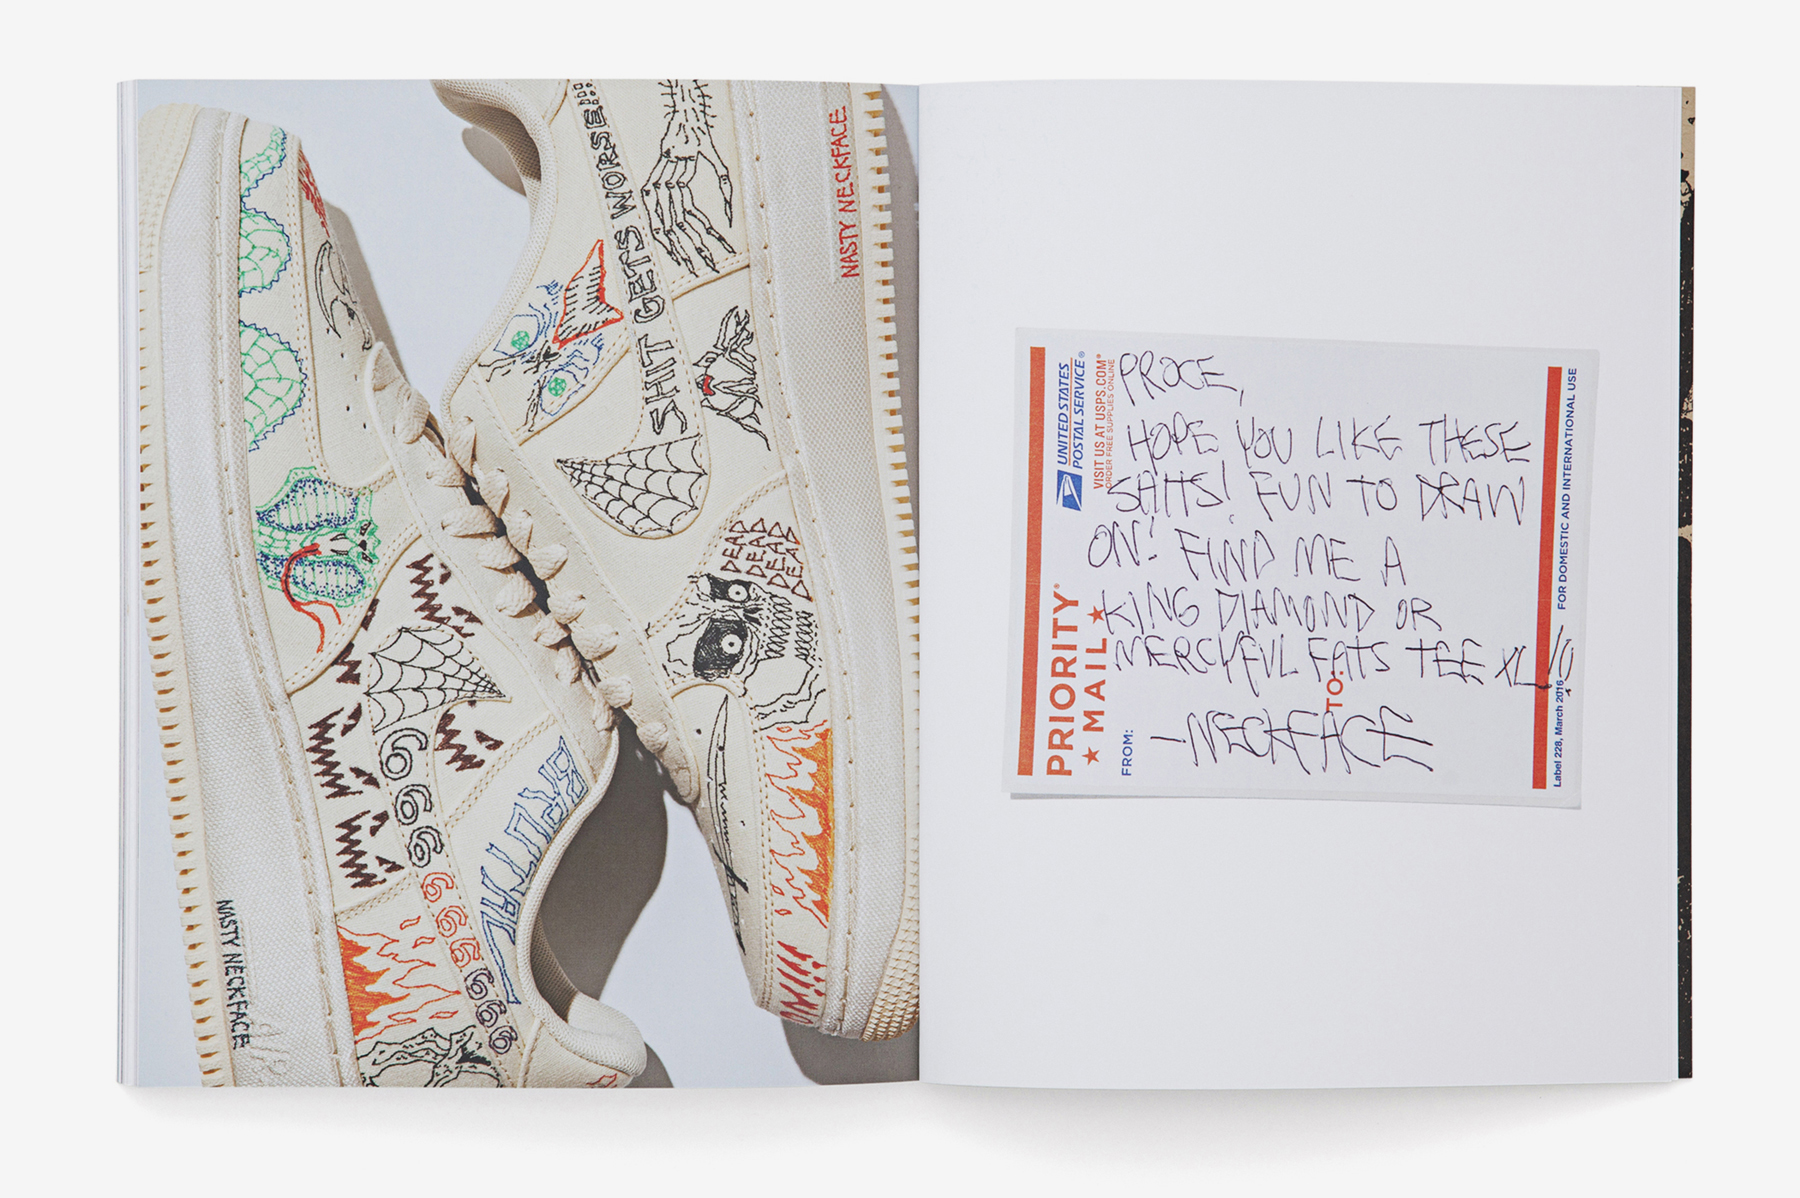 SHIT GETS WORSE!!!
NASTY NECKFACE
DEAD DEAD
DEAD DEAD
DEAD DEAD
DEAD DEAD
666
666
666
666
BRUTAL
NASTY NECKFACE
UNITED STATES
POSTAL SERVICE®
VISIT US AT USPS.COM®
ORDER FREE SUPPLIES ONLINE
PRIORITY®
★ MAIL ★
FROM:
TO:
HOPE YOU LIKE THESE
FUN TO DRAW
ON! FIND ME A
KING DIAMOND OR
MERCYFUL FATS TEE XL
-NECKFACE
Label 228, March 2016
FOR DOMESTIC AND INTERNATIONAL USE